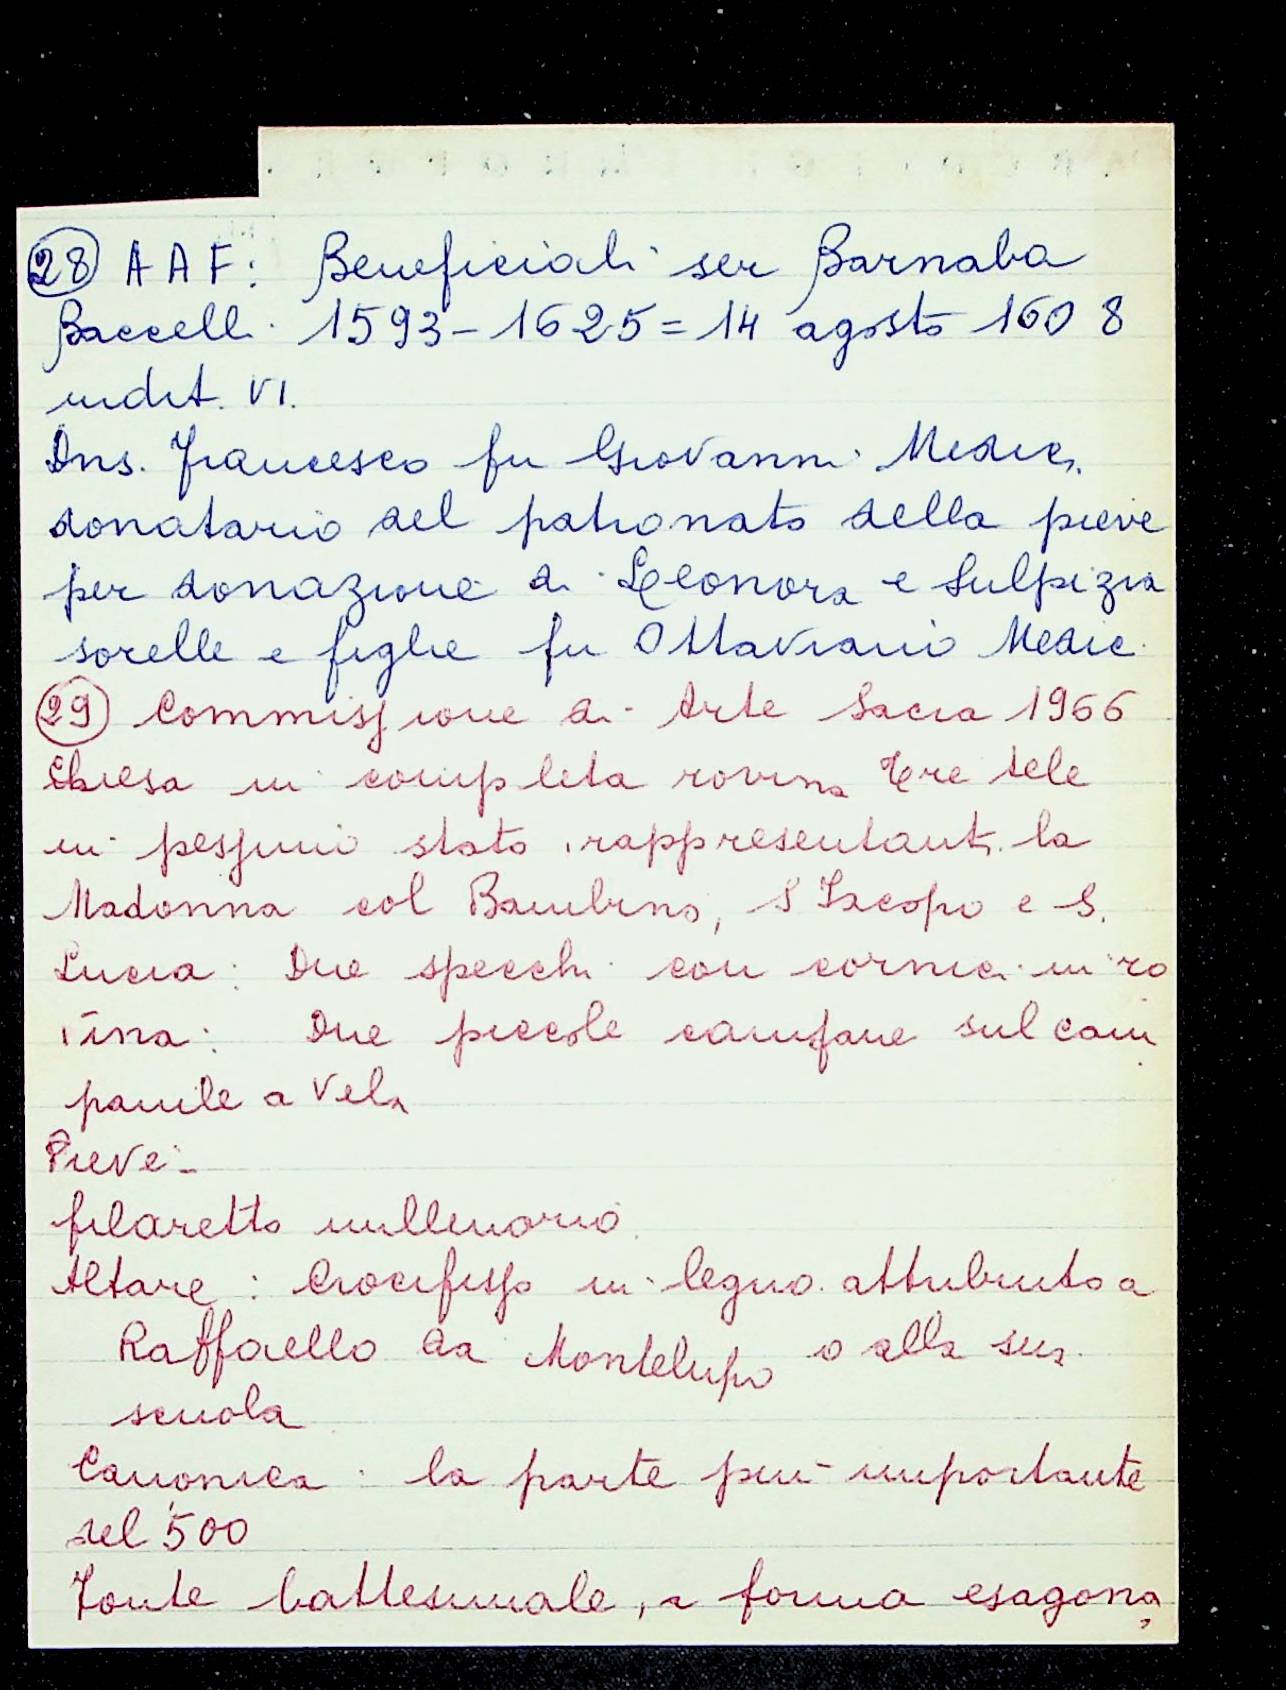 28 A A F: Beneficiali ser Barnaba
Baccelli 1593-1625=14 agosto 1608
indit. VI.
Dns. Francesco fu Giovanni Medici,
donatario del patronato della pieve
per donazione di Leonora e Sulpizia
sorelle e figlie fu Ottaviano Medici
29 Commissione di Arte Sacra 1966
Chiesa in completa rovina Tre tele
in pessimo stato rappresentanti la
Madonna col Bambino, S Iacopo e S.
Lucia: Due specchi con cornici in ro
vina: Due piccole campane sul cam
panile a vela
Pieve-
filaretto millenario.
Altare: Crocifisso in legno attribuito a
Raffaello da Montelupo o alla sua
scuola
Canonica: la parte più importante
del '500
Fonte battesimale, a forma esagona,